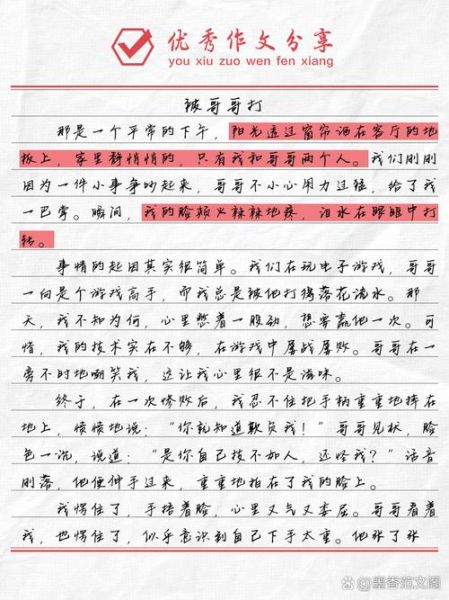 优秀作文分享
you xiu zuo wen fen xiang
被哥哥打
那是一个平常的下午，阳光透过窗帘洒在客厅的地
板上，家里静悄悄的，只有我和哥哥两个人。我们刚刚
因为一件小事争吵起来，哥哥不小心用力过猛，给了我
一巴掌。瞬间，我的脸颊火辣辣地疼，泪水在眼眶中打
转。
事情的起因其实很简单。我们在玩电子游戏，哥哥
一向是个游戏高手，而我总是被他打得落花流水。那
天，我不知为何，心里憋着一股劲，想要赢他一次。可
惜，我的技术实在不够，在游戏中屡战屡败。哥哥在一
旁不时地嘲笑我，这让我心里很不是滋味。
终于，在一次惨败后，我忍不住把手柄重重地摔在
地上，愤愤地说：“你就知道欺负我！”哥哥见状，脸
色一沉，说道：“是你自己技不如人，还怪我？”话音
刚落，他便伸手过来，重重地拍在了我的脸上。
我愣住了，手捂着脸，心里又气又委屈。哥哥看着
我，也愣住了，似乎意识到自己下手太重。他张了张
@墨香范文阁